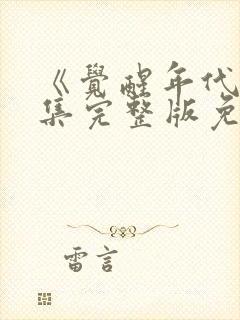 《覺醒年代
集完整版免
雷言